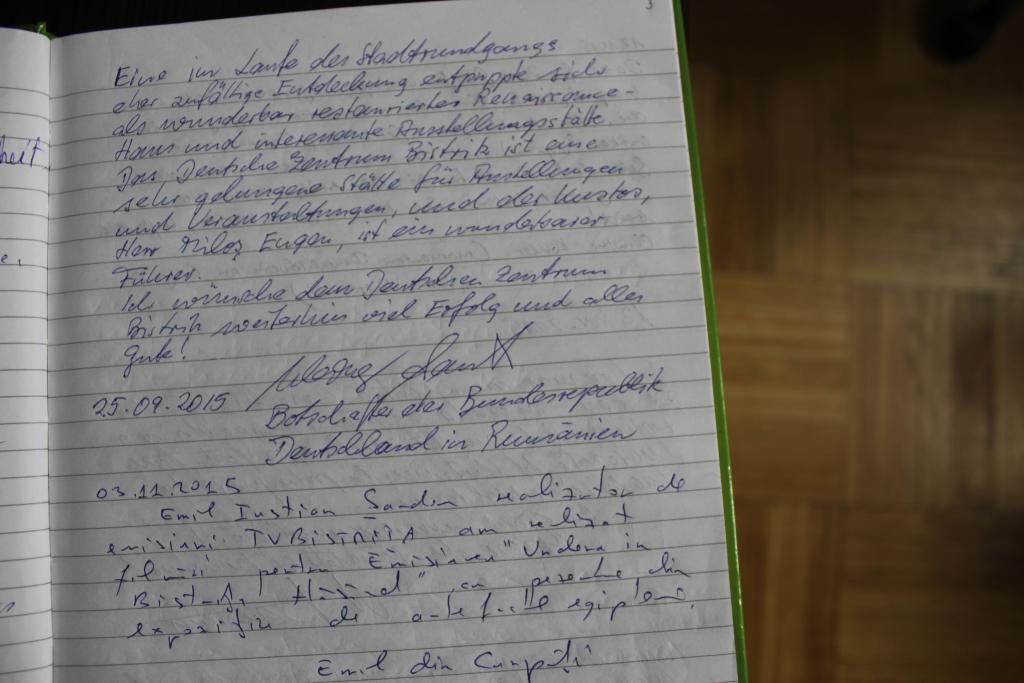 3
Eine im Laufe des Stadtrundgangs
eher zufällige Entdeckung entpuppte sich
als wunderbar restauriertes Renaissance-
Haus und interessante Ausstellungsstätte.
Das Deutsche Zentrum Bistritz ist eine
sehr gelungene Stätte für Ausstellungen
und Veranstaltungen, und der Kustos,
Herr Eugen, ist ein wunderbarer
Führer.
Ich wünsche dem Deutschen Zentrum
Bistritz weiterhin viel Erfolg und alles
Gute!
25.09.2015
Botschafter der Bundesrepublik
Deutschland in Rumänien
03.11.2015
Emil Iustian Sandu realizator de
emisiuni TV BISTRIȚA am realizat
filmări pentru Emisiunea "Undeva în
Bistrița Năsăud" cu piesele din
expoziție de artefacte egiptene,
Emil din
heit
e,